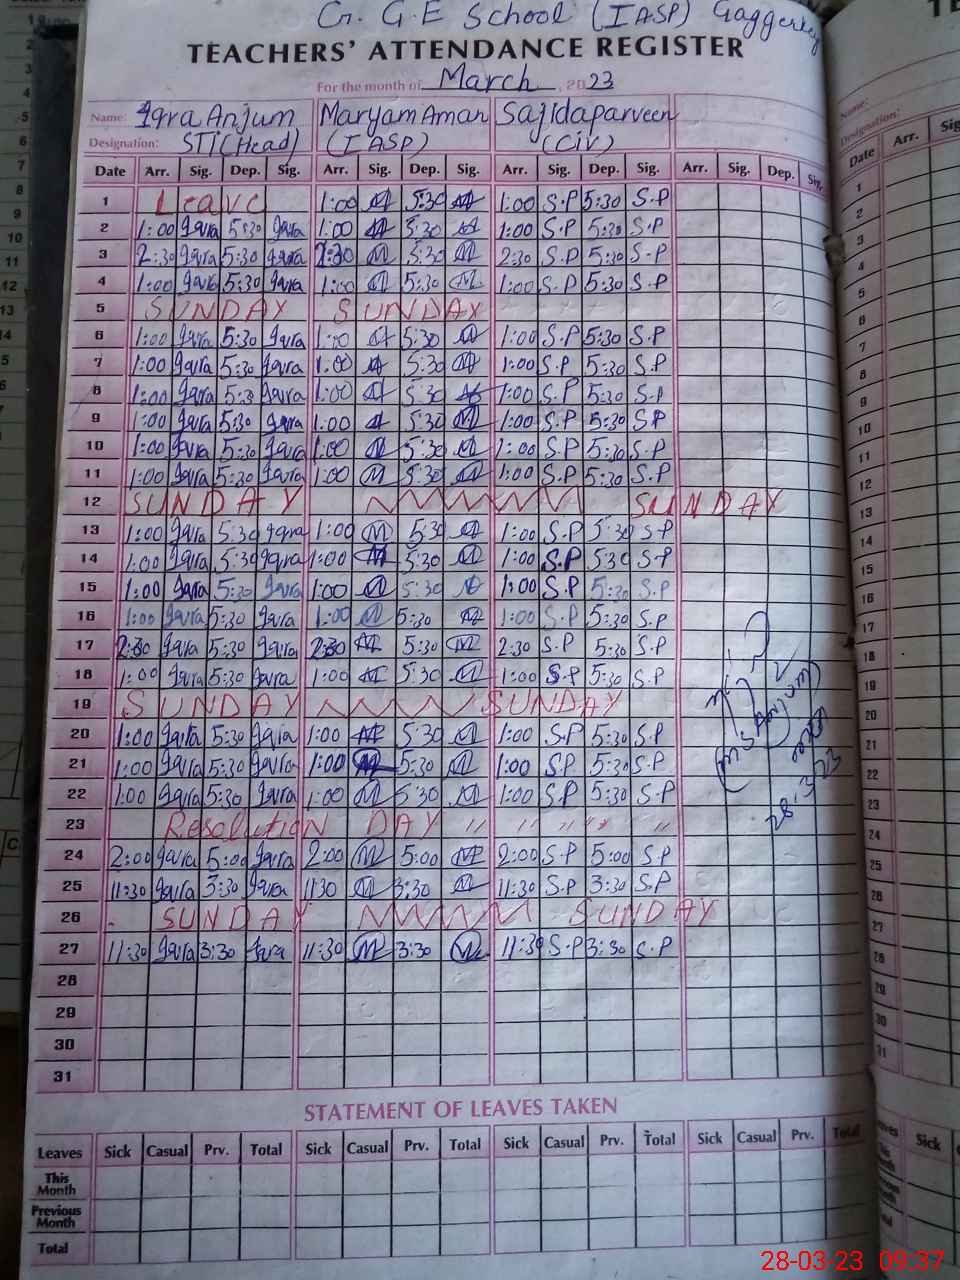 G. G. E School (IASP) Gaggerkey
TEACHERS' ATTENDANCE REGISTER
For the month of March, 2023
Name: Iqra Anjum Maryam Aman Sajida parveen
Designation: STi (Head) (IASP) (Civ)
Date Arr. Sig. Dep. Sig. Arr. Sig. Dep. Sig. Arr. Sig. Dep. Sig. Arr. Sig. Dep. Sig.
1 Leave 1:00 M 5:30 M 1:00 S.P 5:30 S.P
2 1:00 Iqra 5:30 Iqra 1:00 M 5:30 M 1:00 S.P 5:30 S.P
3 2:30 Iqra 5:30 Iqra 2:30 M 5:30 M 2:30 S.P 5:30 S.P
4 1:00 Iqra 5:30 Iqra 1:00 M 5:30 M 1:00 S.P 5:30 S.P
5 SUNDAY SUNDAY
6 1:00 Iqra 5:30 Iqra 1:00 M 5:30 M 1:00 S.P 5:30 S.P
7 1:00 Iqra 5:30 Iqra 1:00 M 5:30 M 1:00 S.P 5:30 S.P
8 1:00 Iqra 5:30 Iqra 1:00 M 5:30 M 1:00 S.P 5:30 S.P
9 1:00 Iqra 5:30 Iqra 1:00 M 5:30 M 1:00 S.P 5:30 S.P
10 1:00 Iqra 5:30 Iqra 1:00 M 5:30 M 1:00 S.P 5:30 S.P
11 1:00 Iqra 5:30 Iqra 1:00 M 5:30 M 1:00 S.P 5:30 S.P
12 SUNDAY SUNDAY
13 1:00 Iqra 5:30 Iqra 1:00 M 5:30 M 1:00 S.P 5:30 S.P
14 1:00 Iqra 5:30 Iqra 1:00 M 5:30 M 1:00 S.P 5:30 S.P
15 1:00 Iqra 5:30 Iqra 1:00 M 5:30 M 1:00 S.P 5:30 S.P
16 1:00 Iqra 5:30 Iqra 1:00 M 5:30 M 1:00 S.P 5:30 S.P
17 2:30 Iqra 5:30 Iqra 2:30 M 5:30 M 2:30 S.P 5:30 S.P
18 1:00 Iqra 5:30 Iqra 1:00 M 5:30 M 1:00 S.P 5:30 S.P
19 SUNDAY SUNDAY
20 1:00 Iqra 5:30 Iqra 1:00 M 5:30 M 1:00 S.P 5:30 S.P
21 1:00 Iqra 5:30 Iqra 1:00 M 5:30 M 1:00 S.P 5:30 S.P
22 1:00 Iqra 5:30 Iqra 1:00 M 5:30 M 1:00 S.P 5:30 S.P
23 Resolution DAY " " " " "
24 2:00 Iqra 5:00 Iqra 2:00 M 5:00 M 2:00 S.P 5:00 S.P
25 11:30 Iqra 3:30 Iqra 1130 M 3:30 M 11:30 S.P 3:30 S.P
26 SUNDAY SUNDAY
27 11:30 Iqra 3:30 Iqra 11:30 M 3:30 M 11:30 S.P 3:30 S.P
28
29
30
31
28.3.23
STATEMENT OF LEAVES TAKEN
Leaves Sick Casual Prv. Total Sick Casual Prv. Total Sick Casual Prv. Total Sick Casual Prv. Total
This Month
Previous Month
Total
28-03-23 09:37